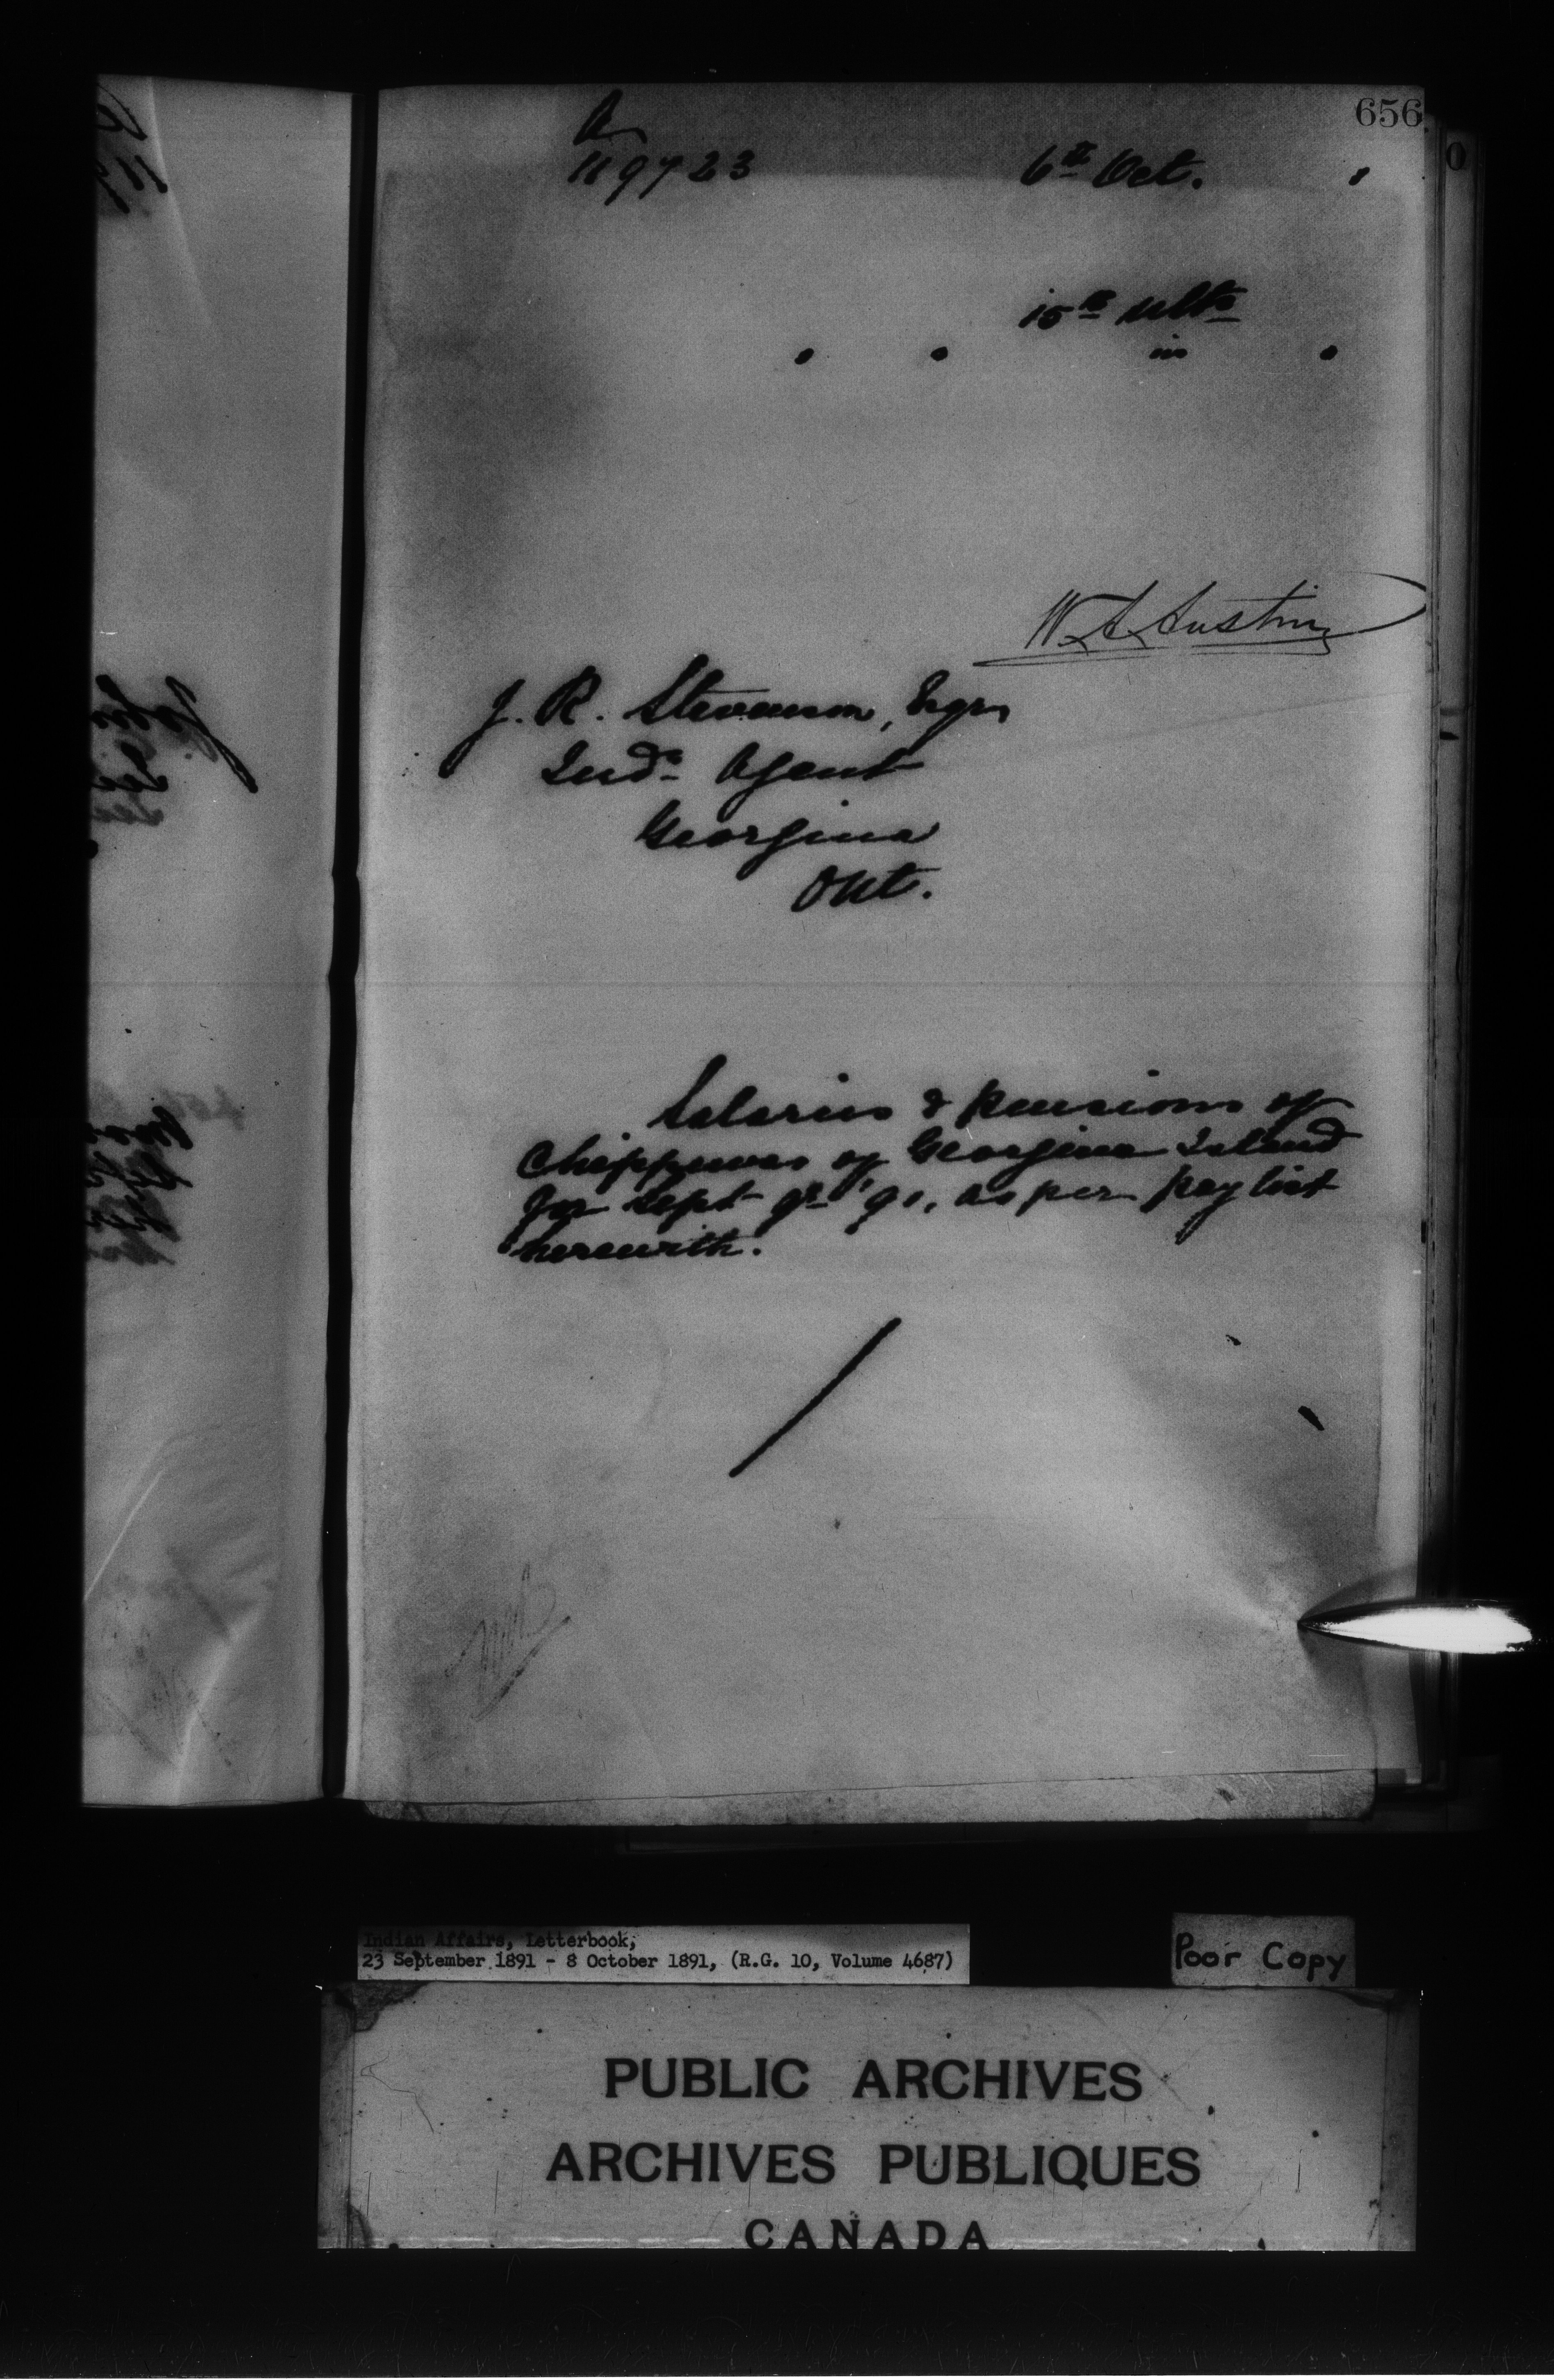 656
A
119723
6th Oct.
15th ulto
in
W. A. Austin
J. R. Stevenson, Esqr,
Indn. Agent
Georgina
Ont.
Salaries & pensions of
Chippewas of Georgina Island
for Sept qr '91, as per paylist
herewith.
Indian Affairs, Letterbook,
23 September 1891 - 8 October 1891, (R.G. 10, Volume 4687)
Poor Copy
PUBLIC ARCHIVES
ARCHIVES PUBLIQUES
CANADA